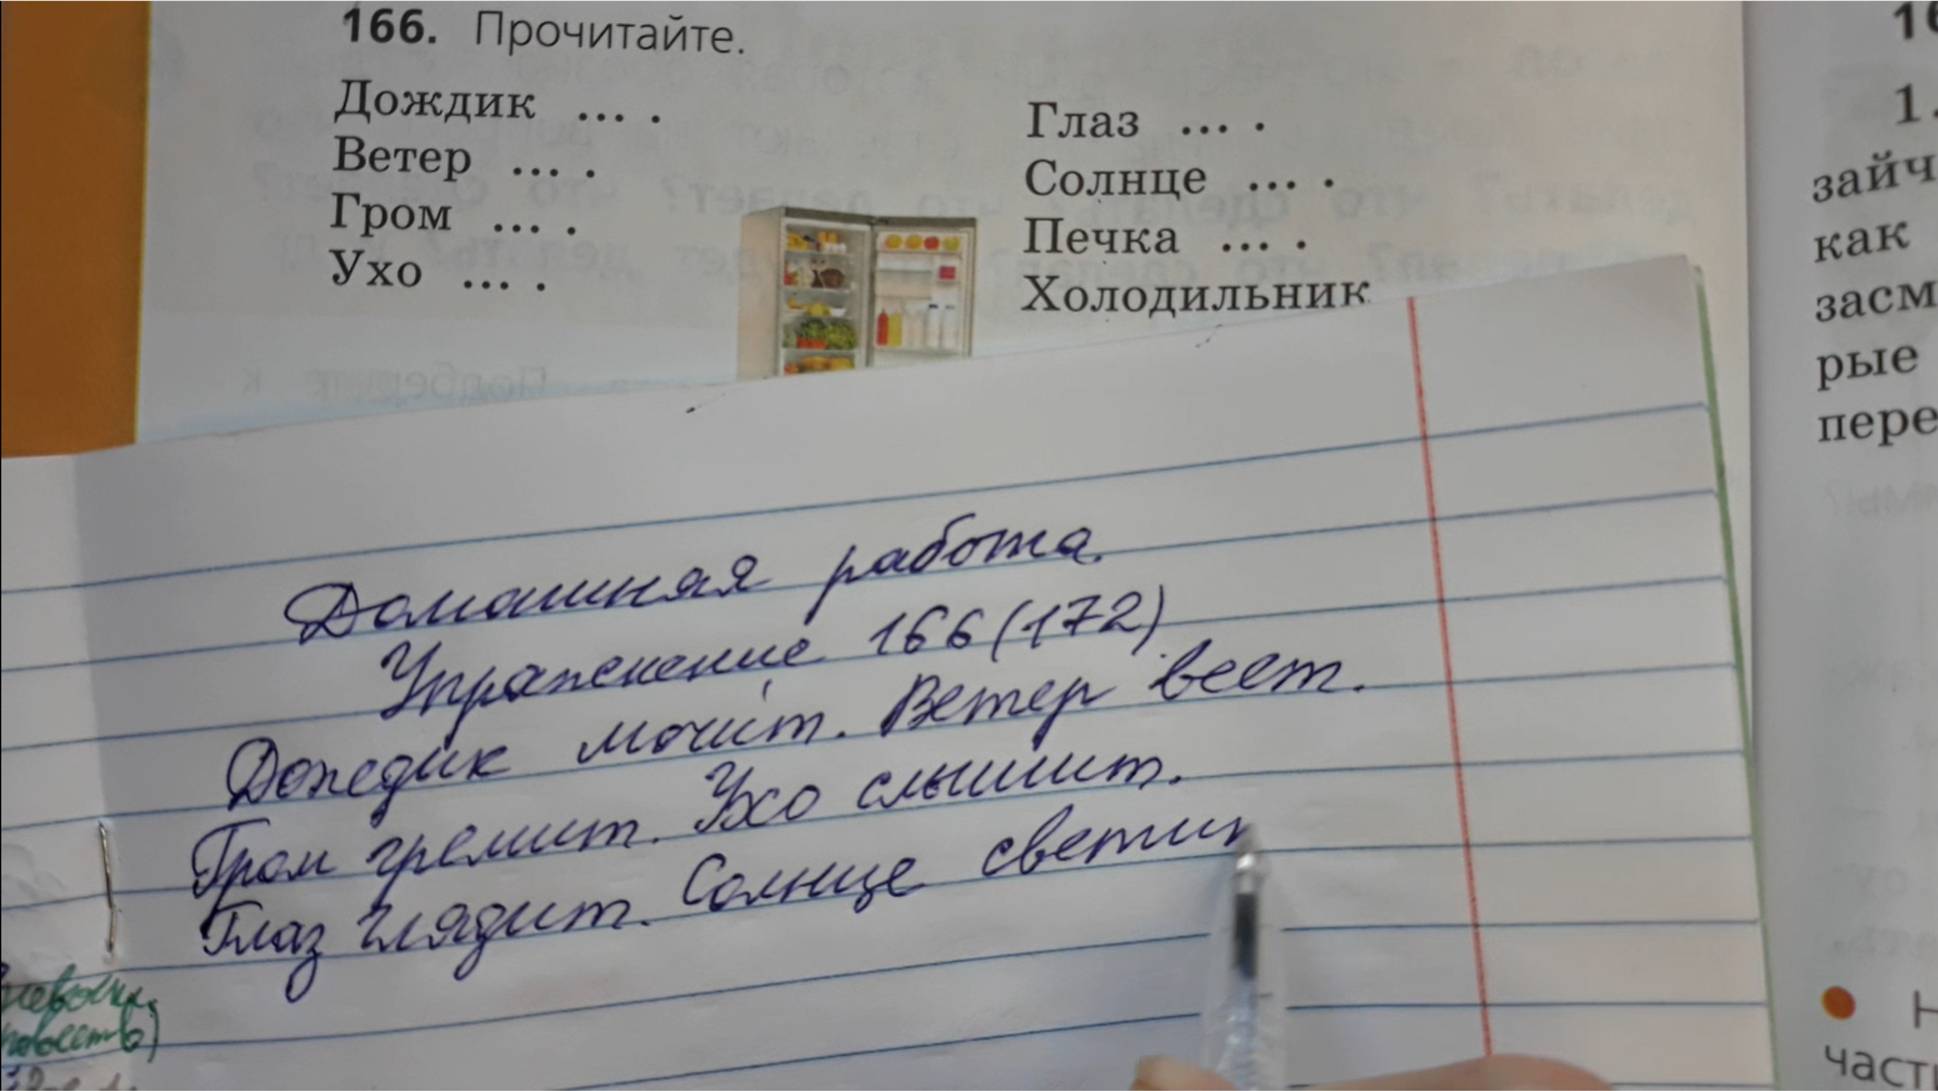 166. Прочитайте.
Дождик ... .
Ветер ... .
Гром ... .
Ухо ... .
Глаз ... .
Солнце ... .
Печка ... .
Холодильник
16
1.
зайч
как
засм
рые
пере
Н
част
Домашняя работа.
Упражнение 166 (172)
Дождик мочит. Ветер веет.
Гром гремит. Ухо слышит.
Глаз глядит. Солнце светит